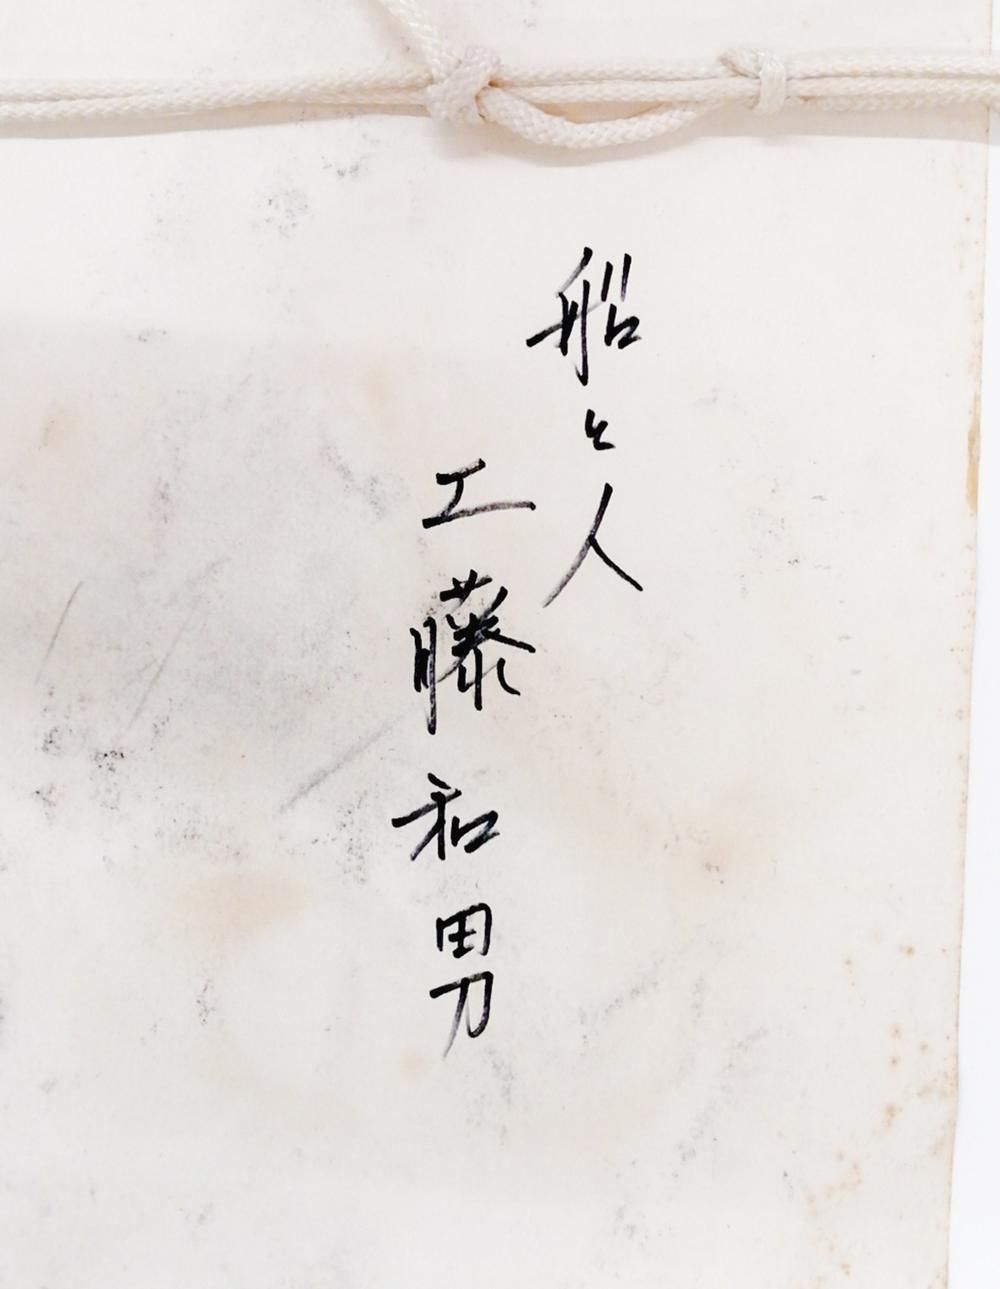 船と人
工藤和男